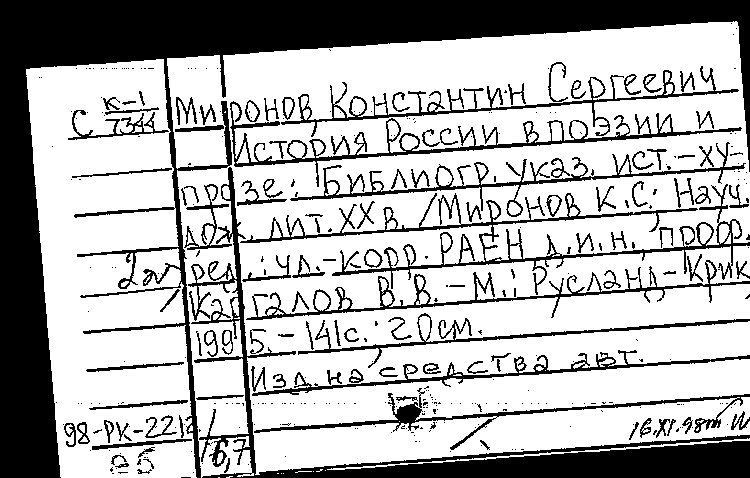 С К-1/7344 Миронов, Константин Сергеевич
История России в поэзии и
прозе: Библиогр. указ. ист.-ху-
дож. лит. XX в. /Миронов К.С.; Науч.
2 ред.: чл.-корр. РАЕН д.и.н., проф.
Каргалов В.В. - М.: Русланд-Крик,
1995. - 141с.; 20см.
Изд. на средства авт.
98-РК-2212
еб 6,7 16.XI.98